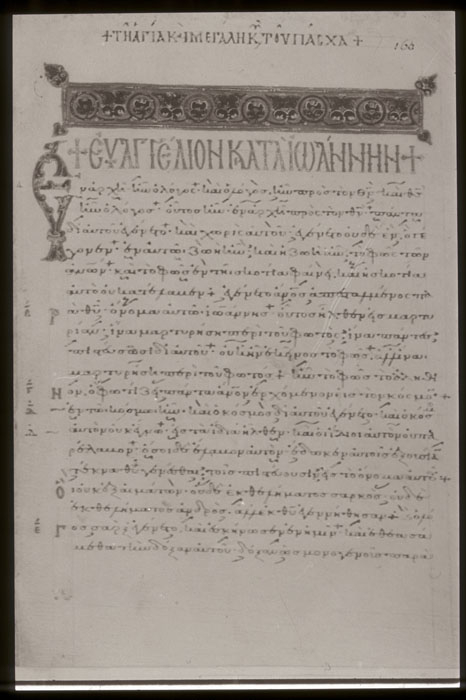 + ΤΗ ΑΓΙΑ Κ ΜΕΓΑΛΗ Κυ ΤΟΥ ΠΑΣΧΑ +
160
+ ΕΥΑΓΓΕΛΙΟΝ ΚΑΤΑ ΙΩΑΝΝΗΝ +
Ἐν ἀρχῇ ἦν ὁ λόγος· καὶ ὁ λόγος ἦν πρὸς τὸν θν· καὶ θς
ἦν ὁ λόγος· οὗτος ἦν ἐν ἀρχῇ πρὸς τὸν θν· πάντα
δι' αὐτοῦ ἐγένετο· καὶ χωρὶς αὐτοῦ ἐγένετο οὐδὲ ἕν, ὃ γέ
γονεν· ἐν αὐτῷ ζωὴ ἦν· καὶ ἡ ζωὴ ἦν τὸ φῶς τῶν
ἀνων· καὶ τὸ φῶς ἐν τῇ σκοτία φαίνει, καὶ ἡ σκοτία
αὐτὸ οὐ κατέλαβεν + ἐγένετο ἄνος ἀπεσταλμένος πα
ρὰ θυ· ὄνομα αὐτῷ ἰωάννης· οὗτος ἦλθεν εἰς μαρτυ
ρίαν, ἵνα μαρτυρήσῃ περὶ τοῦ φωτός· ἵνα πάντες
πιστεύσωσι δι' αὐτοῦ· οὐκ ἦν ἐκεῖνος τὸ φῶς, ἀλλ' ἵνα
μαρτυρήσῃ περὶ τοῦ φωτός + ἦν τὸ φῶς τὸ ἀληθι
νόν, ὃ φωτίζει πάντα ἄνον ἐρχόμενον εἰς τὸν κόσμον +
ἐν τῷ κόσμῳ ἦν· καὶ ὁ κόσμος δι' αὐτοῦ ἐγένετο· καὶ ὁ κόσμος
αὐτὸν οὐκ ἔγνω· εἰς τὰ ἴδια ἦλθεν· καὶ οἱ ἴδιοι αὐτὸν οὐ πα
ρέλαβον· ὅσοι δὲ ἔλαβον αὐτὸν· ἔδωκεν αὐτοῖς ἐξουσίαν
τέκνα θυ γενέσθαι· τοῖς πιστεύουσιν εἰς τὸ ὄνομα αὐτοῦ +
οἳ οὐκ ἐξ αἱμάτων· οὐδὲ ἐκ θελήματος σαρκός· οὐδὲ
ἐκ θελήματος ἀνδρός· ἀλλ' ἐκ θυ ἐγεννήθησαν + καὶ ὁ λό
γος σὰρξ ἐγένετο, καὶ ἐσκήνωσεν ἐν ἡμῖν· καὶ ἐθεασά
μεθα τὴν δόξαν αὐτοῦ· δόξαν ὡς μονογενοῦς παρὰ